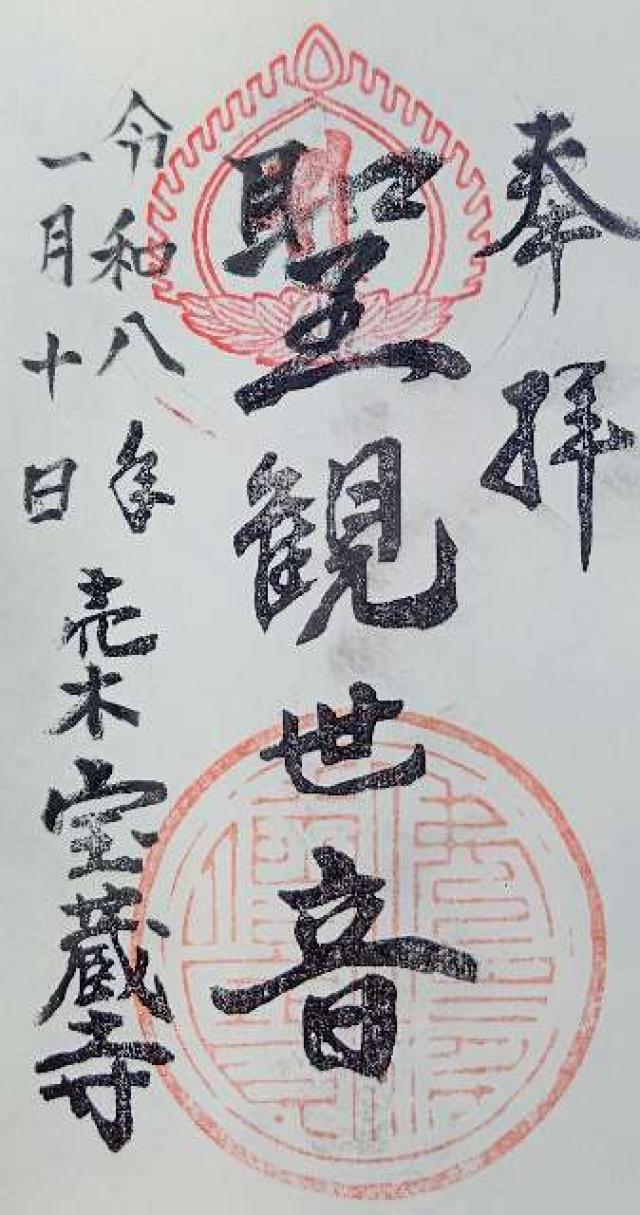 奉拝
聖観世音
令和八年
一月十日
売木宝蔵寺